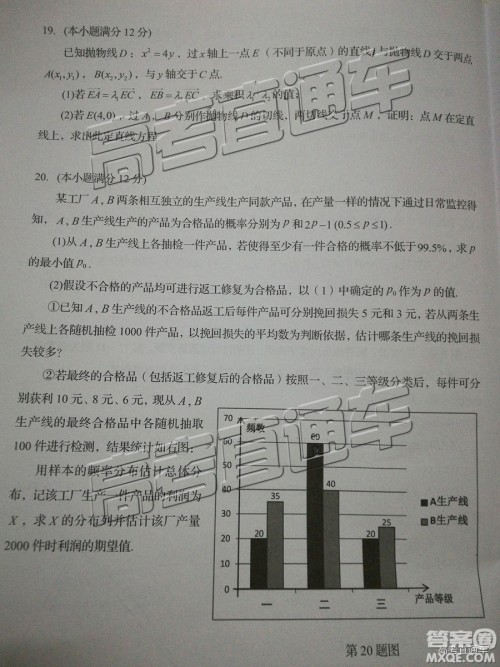 19. (本小题满分12分)
已知抛物线D：x²=4y，过x轴上一点E（不同于原点）的直线l与抛物线D交于两点
A(x₁,y₁)，B(x₂,y₂)，与y轴交于C点.
(1)若EA=λ₁EC，EB=λ₂EC，求乘积λ₁·λ₂的值；
(2)若E(4,0)，过A，B分别作抛物线D的切线，两切线交于点M，证明：点M在定直
线上，求出此定直线方程.
20. (本小题满分12分)
某工厂A,B两条相互独立的生产线生产同款产品，在产量一样的情况下通过日常监控得
知，A,B生产线生产的产品为合格品的概率分别为p和2p-1(0.5≤p≤1).
(1)从A,B生产线上各抽检一件产品，若使得至少有一件合格的概率不低于99.5%，求p
的最小值p₀.
(2)假设不合格的产品均可进行返工修复为合格品，以（1）中确定的p₀作为p的值.
①已知A,B生产线的不合格品返工后每件产品可分别挽回损失5元和3元，若从两条生
产线上各随机抽检1000件产品，以挽回损失的平均数为判断依据，估计哪条生产线的挽回损
失较多？
②若最终的合格品（包括返工修复后的合格品）按照一、二、三等级分类后，每件可分
别获利10元、8元、6元，现从A,B
生产线的最终合格品中各随机抽取
100件进行检测，结果统计如右图；
用样本的频率分布估计总体分
布，记该工厂生产一件产品的利润为
X，求X的分布列并估计该厂产量
2000件时利润的期望值.
频数
70
60
50
40
30
20
10
0
20
35
60
40
20
25
一 二 三
产品等级
A生产线
B生产线
第20题图
高考直通车
高考直通车
高考直通车
答案圈
MXQE.COM